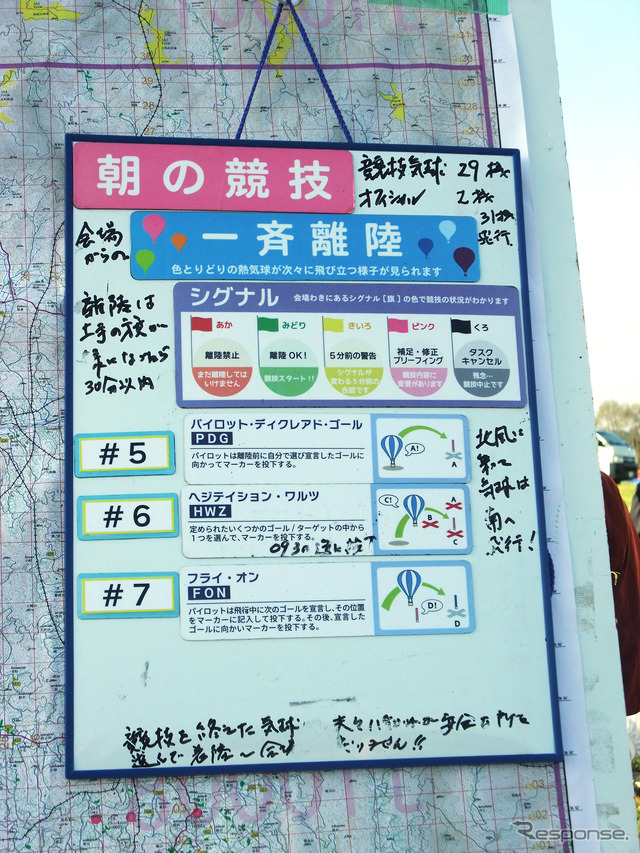 朝の競技
競技気球 29機
オフィシャル 2機
31機
飛行
会場
からの
一斉離陸
色とりどりの熱気球が次々に飛び立つ様子が見られます
シグナル 会場わきにあるシグナル［旗］の色で競技の状況がわかります
あか
離陸禁止
まだ離陸しては
いけません
みどり
離陸OK!
競技スタート!!
きいろ
5分前の警告
シグナルが
変わる5分前の
合図です
ピンク
補足・修正
ブリーフィング
競技内容に
変更があります
くろ
タスク
キャンセル
残念…
競技中止です
離陸は
30分以内
#5
パイロット・ディクレアド・ゴール
PDG
パイロットは離陸前に自分で選び宣言したゴールに
向かってマーカーを投下する。
A!
A
#6
ヘジテイション・ワルツ
HWZ
定められたいくつかのゴール/ターゲットの中から
1つを選んで、マーカーを投下する。
C!
A
B
C
#7
フライ・オン
FON
パイロットは飛行中に次のゴールを宣言し、その位置
をマーカーに記入して投下する。その後、宣言した
ゴールに向かいマーカーを投下する。
D!
D
北風に
乗って
気球は
南へ
飛行!
競技を終えた気球
Response.